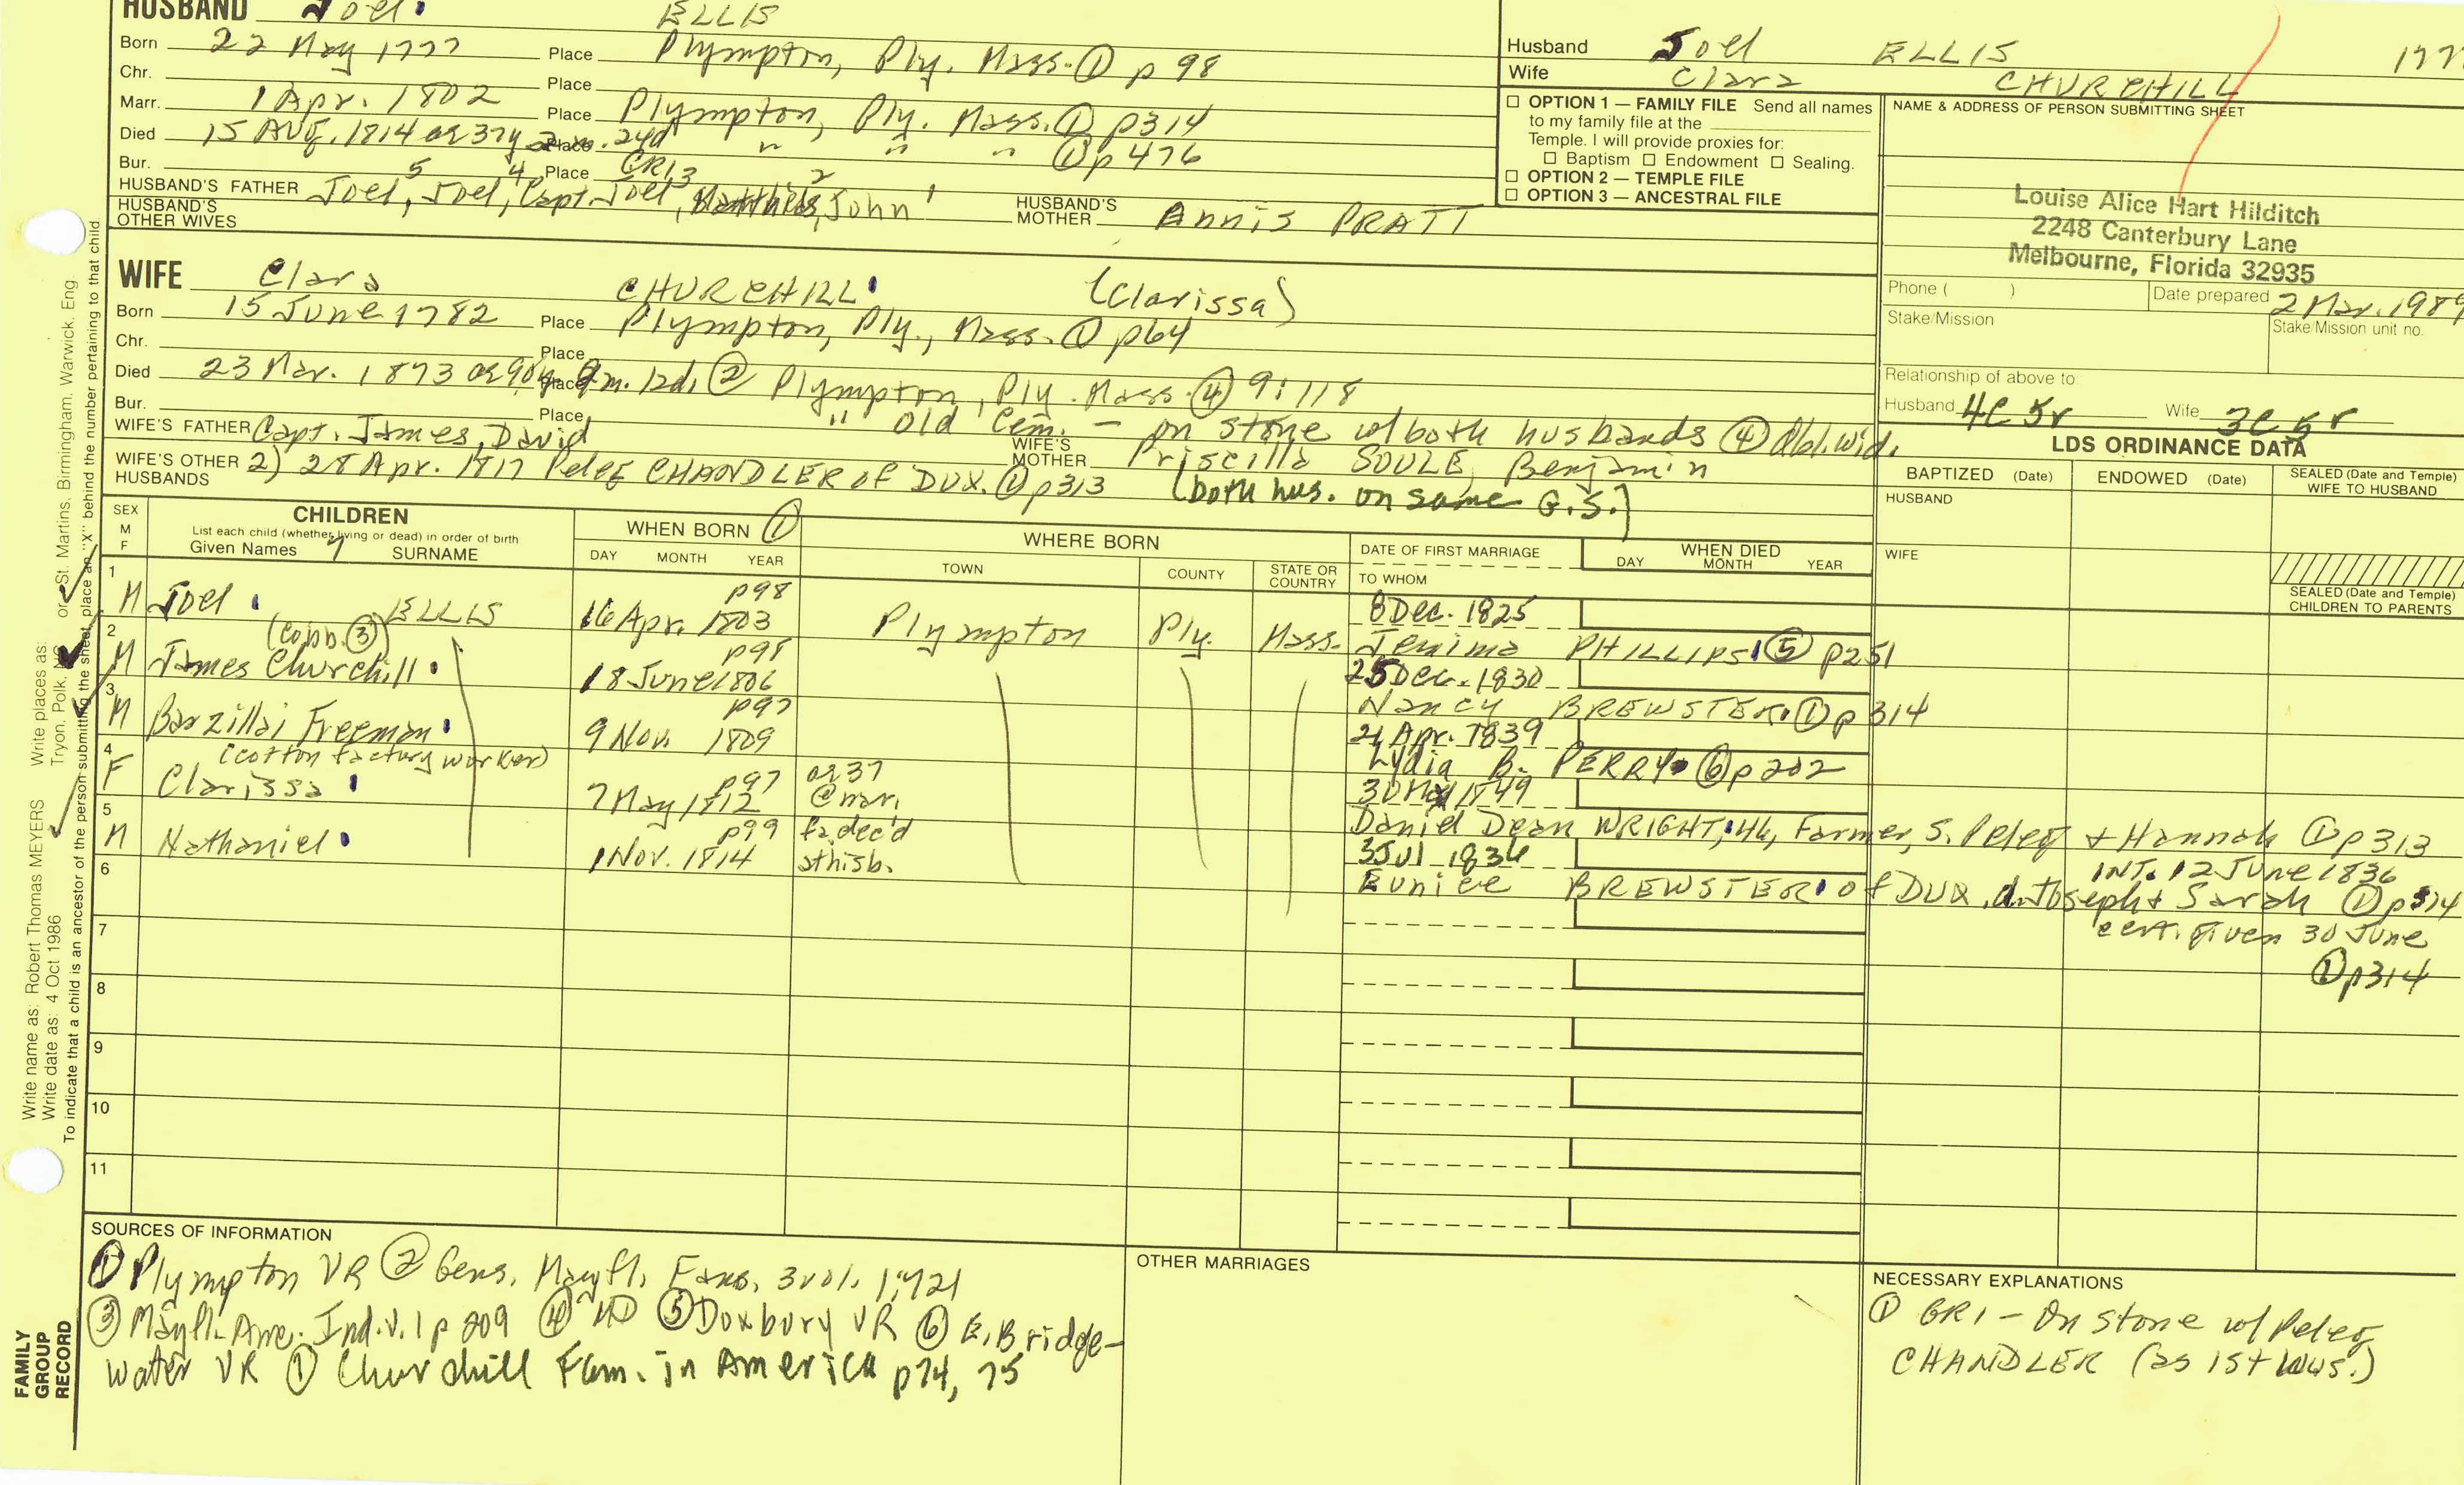 HUSBAND Joel ELLIS
Born 22 May 1777 Place Plympton, Ply. Mass. ① p 98
Chr. Place
Marr. 1 Apr. 1802 Place Plympton, Ply. Mass. ① p314
Died 15 AUG. 1814 ae 37y 2m. 24d Place " " " ① p 476
Bur. Place GR13
HUSBAND'S FATHER Joel,5 Joel,4 Capt. Joel, 2 John 1 HUSBAND'S MOTHER Annis PRATT
HUSBAND'S OTHER WIVES
WIFE Clara CHURCHILL (Clarissa)
Born 15 June 1782 Place Plympton, Ply., Mass. ① p64
Chr. Place
Died 23 Mar. 1873 ae 90y. 9m. 12d. ② Place Plympton, Ply. Mass. ④ 9:118
Bur. Place " Old Cem. – on stone w/ both husbands ④ dbl. wid.
WIFE'S FATHER Capt. James, David WIFE'S MOTHER Priscilla SOULE, Benjamin
WIFE'S OTHER HUSBANDS 2) 28 Apr. 1817 Peleg CHANDLER OF DUX. ① p313 (both hus. on same G.S.)
Husband Joel ELLIS 177
Wife Clara CHURCHILL
☐ OPTION 1 — FAMILY FILE Send all names
to my family file at the
Temple. I will provide proxies for:
☐ Baptism ☐ Endowment ☐ Sealing.
☐ OPTION 2 — TEMPLE FILE
☐ OPTION 3 — ANCESTRAL FILE
NAME & ADDRESS OF PERSON SUBMITTING SHEET
Louise Alice Hart Hilditch
2248 Canterbury Lane
Melbourne, Florida 32935
Phone ( ) Date prepared 2 Mar. 1989
Stake/Mission Stake/Mission unit no.
Relationship of above to:
Husband 4C 5r Wife 3C 5r
LDS ORDINANCE DATA
BAPTIZED (Date) ENDOWED (Date) SEALED (Date and Temple) WIFE TO HUSBAND
HUSBAND
WIFE
SEALED (Date and Temple) CHILDREN TO PARENTS
SEX M F
CHILDREN
List each child (whether living or dead) in order of birth
Given Names SURNAME
WHEN BORN ①
DAY MONTH YEAR
WHERE BORN
TOWN COUNTY STATE OR COUNTRY
DATE OF FIRST MARRIAGE
TO WHOM
WHEN DIED
DAY MONTH YEAR
1 M Joel ELLIS p98 16 Apr. 1803 Plympton Ply. Mass. 8 Dec. 1825
(③) Jemima PHILLIPS ⑤ p251
2 M James Churchill p98 18 June 1806 25 Dec. 1830
Nancy BREWSTER ① p314
3 M Barzillai Freeman p97 9 Nov. 1809 21 Apr. 1839
(cotton factory worker) Lydia B. PERRY ⑥ p202
4 F Clarissa p97 7 May 1812 ae 37 @ mar. 30 May 1849
Daniel Dean WRIGHT, 46, Farmer, S. Peleg + Hannah ① p313
5 M Nathaniel p99 1 Nov. 1814 fa. dec'd at his b. 3 Jul 1836
INT. 12 June 1836
Eunice BREWSTER of DUX. d. Joseph + Sarah ① p314
cert. given 30 June
① p314
6
7
8
9
10
11
SOURCES OF INFORMATION
① Plympton VR ② Gens. Mayfl. Fams. 3 vol. 1:721
③ Mayfl. Ind. v. 1 p 209 ④ MD ⑤ Duxbury VR ⑥ E. Bridge-
water VR ① Churchill Fam. in America p74, 75
OTHER MARRIAGES
NECESSARY EXPLANATIONS
① GR1 – On stone w/ Peleg
CHANDLER (as 1st hus.)
Write name as: Robert Thomas MEYERS Write places as: Tryon, Polk, NC or St. Martins, Birmingham, Warwick, Eng.
Write date as: 4 Oct 1986
To indicate that a child is an ancestor of the person submitting the sheet, place an "X" behind the number pertaining to that child
FAMILY
GROUP
RECORD